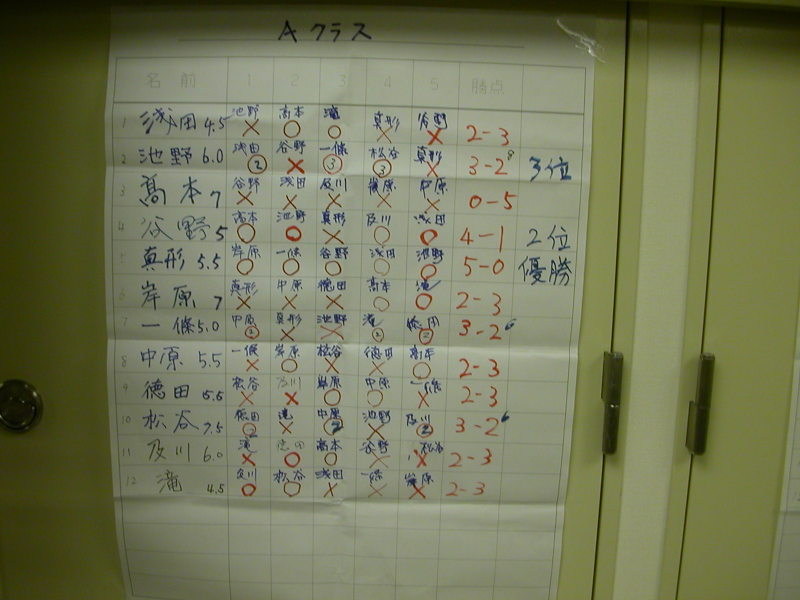 Aクラス
名前 1 2 3 4 5 勝点
1 浅田 4.5 池野 × 高本 ○ 滝 ○ 真形 × 谷野 × 2-3
2 池野 6.0 浅田 ② 谷野 × 一條 ③ 松谷 ③ 真形 × 3-2 8 3位
3 高本 7 谷野 × 浅田 × 及川 × 岸原 × 中原 × 0-5
4 谷野 5 高本 ○ 池野 ○ 真形 × 及川 ○ 浅田 ○ 4-1 2位
5 真形 5.5 岸原 ○ 一條 ○ 谷野 ○ 浅田 ○ 池野 ○ 5-0 優勝
6 岸原 7 真形 × 中原 × 徳田 × 高本 ○ 滝 ○ 2-3
7 一條 5.0 中原 ② 真形 × 池野 × 滝 ② 徳田 ② 3-2 6
8 中原 5.5 一條 × 岸原 ○ 松谷 × 徳田 × 高本 ○ 2-3
9 徳田 5.5 松谷 × 及川 × 岸原 ○ 中原 ○ 一條 × 2-3
10 松谷 7.5 徳田 ② 滝 × 中原 ② 池野 × 及川 ② 3-2 6
11 及川 6.0 滝 × 徳田 ○ 高本 ○ 谷野 × 松谷 × 2-3
12 滝 4.5 及川 ○ 松谷 ○ 浅田 × 一條 × 岸原 × 2-3